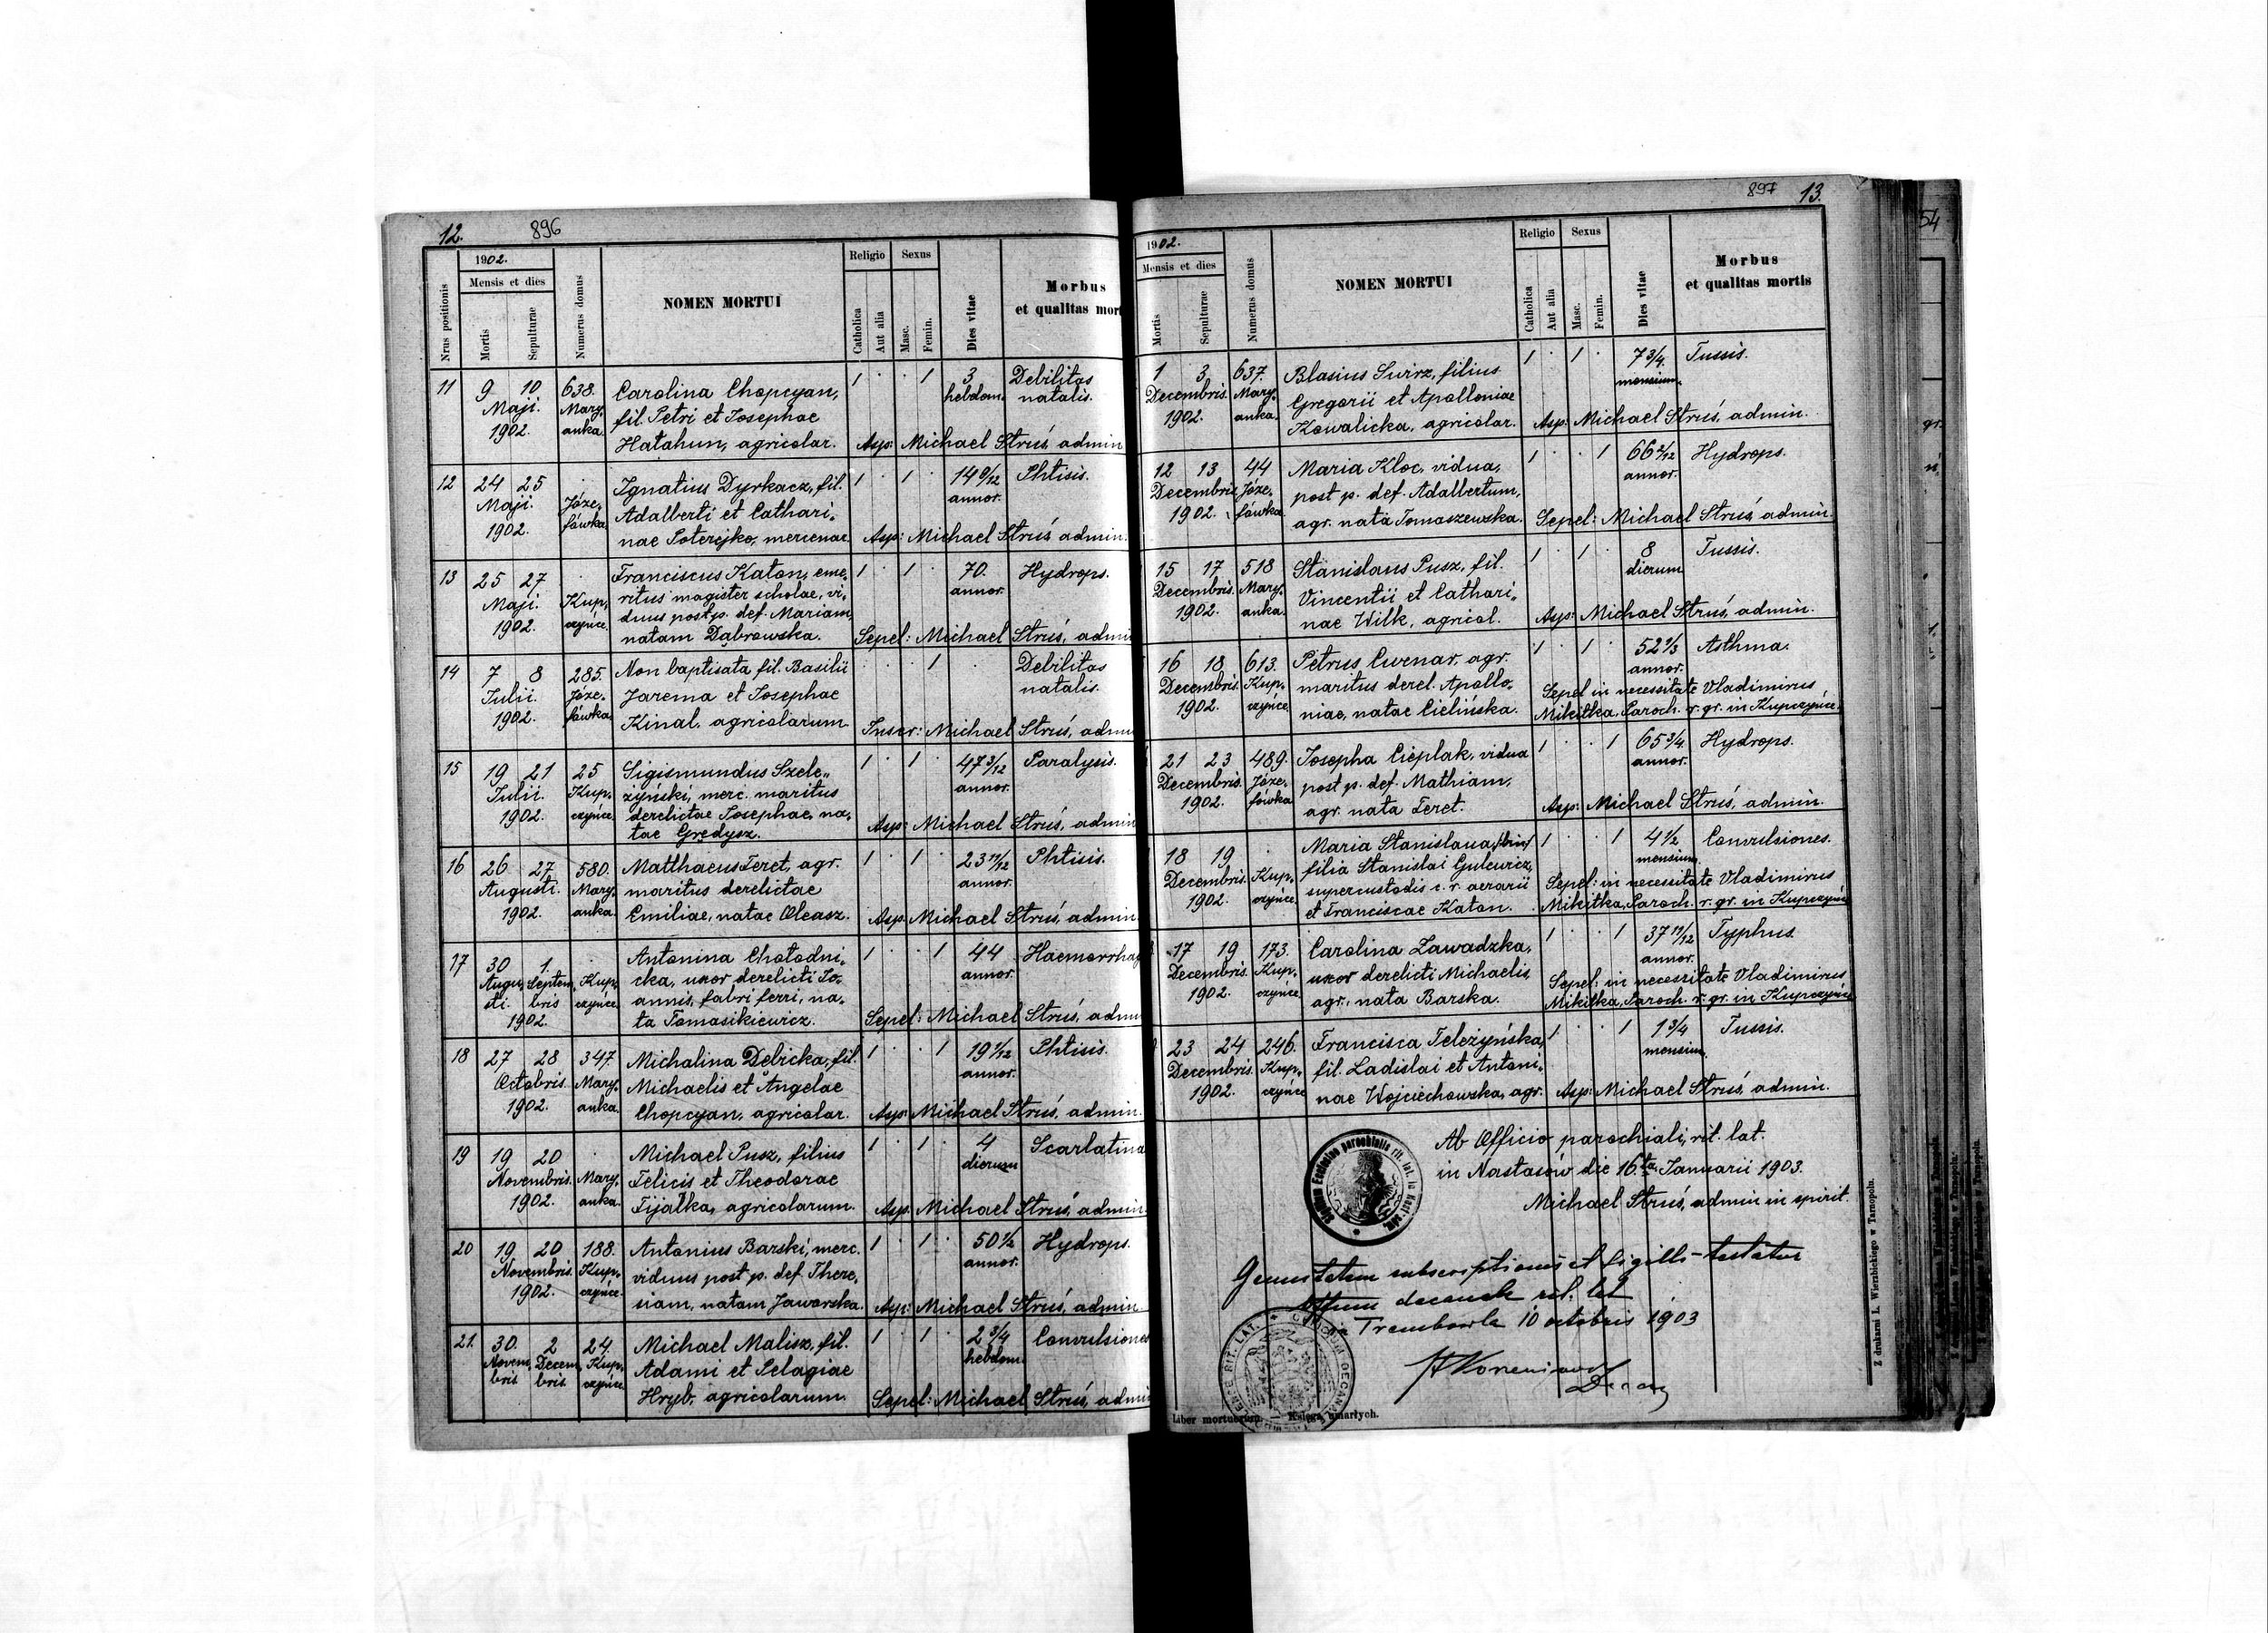 12. 896
1902.
Mensis et dies
Religio Sexus
Nrus positionis
Mortis
Sepulturae
Numerus domus
NOMEN MORTUI
Catholica
Aut alia
Masc.
Femin.
Dies vitae
Morbus
et qualitas mort
11 9 10 638. Carolina Chopcyan, 1 · · 1 3 Debilitas
Maji. Mary- fil. Petri et Josephae hebdom. natalis.
1902. anka. Hatahun, agricolar. Asp: Michael Struś, admin
12 24 25 · Ignatius Dyrkacz, fil. 1 · 1 · 14 8/12 Phtisis.
Maji. Józe- Adalberti et Cathari- annor.
1902. fówka nae Poterejko, mercenar. Asp: Michael Struś admin.
13 25 27 · Franciscus Katon, eme- 1 · 1 · 70. Hydrops.
Maji. Kup- ritus magister scholae, vi- annor.
1902. czyńce. duus post p. def. Mariam,
natam Dąbrowska. Sepel: Michael Struś, admi
14 7 8 285. Non baptisata fil. Basilii · · · 1 · Debilitas
Julii. Józe- Jarema et Josephae natalis.
1902. fówka Kinal, agricolarum. Inscr: Michael Struś, admi
15 19 21 25 Sigismundus Szele- 1 · 1 · 47 3/12 Paralysis.
Julii. Kup- żyński, merc. maritus annor.
1902. czyńce. derelictae Josephae, na-
tae Gredysz. Asp: Michael Struś, admin
16 26 27 580. Matthaeus Feret, agr. 1 · 1 · 23 11/12 Phtisis.
Augusti. Mary- maritus derelictae annor.
1902. anka. Emiliae, natae Oleasz. Asp: Michael Struś, admin.
17 30 1. · Antonina Chołodni- 1 · · 1 44 Haemorrhag
Augu- Septem- Kup- cka, uxor derelicti Jo- annor.
sti. bris czyńce annis, fabri ferri, na-
1902. ta Tomasikiewicz. Sepel: Michael Struś, adm
18 27 28 347. Michalina Debicka, fil. 1 · · 1 19 1/12 Phtisis.
Octobris. Mary- Michaelis et Angelae annor.
1902. anka. Chopcyan, agricolar. Asp: Michael Struś, admin.
19 19 20 · Michael Pusz, filius 1 · 1 · 4 Scarlatina
Novembris. Mary- Felicis et Theodorae dierum
1902. anka. Fijałka, agricolarum. Asp: Michael Struś, admin.
20 19 20 188. Antonius Barski, merc. 1 · 1 · 50 1/2 Hydrops.
Novembris. Kup- viduus post p. def. There- annor.
1902. czyńce. siam, natam Jaworska. Asp: Michael Struś, admin.
21. 30. 2 24. Michael Malisz, fil. 1 · 1 · 2 3/4 Convulsiones
Novem- Decem- Kup- Adami et Pelagiae hebdom.
bris bris. czyńce. Hryb, agricolarum. Sepel: Michael Struś, admi
897 13.
1902.
Mensis et dies
Religio Sexus
Mortis
Sepulturae
Numerus domus
NOMEN MORTUI
Catholica
Aut alia
Masc.
Femin.
Dies vitae
Morbus
et qualitas mortis
1 3 637. Blasius Swirz, filius 1 · 1 · 7 3/4 Tussis.
Decembris. Mary- Gregorii et Apolloniae mensium.
1902. anka. Kowalicka, agricolar. Asp: Michael Struś, admin.
12 13 44 Maria Kloc, vidua, 1 · · 1 66 2/12 Hydrops.
Decembris. Józe- post p. def. Adalbertum, annor.
1902. fówka agr. nata Tomaszewska. Sepel: Michael Struś admin.
15 17 518 Stanislaus Pusz, fil. 1 · 1 · 8 Tussis.
Decembris. Mary- Vincentii et Cathari- dierum
1902. anka. nae Wilk, agricol. Asp: Michael Struś, admin.
16 18 613. Petrus Cwenar, agr. 1 · 1 · 52 1/3 Asthma.
Decembris. Kup- maritus derel. Apollo- annor.
1902. czyńce. niae, natae Cielinska. Sepel in necessitate Vladimirus
Mikitka, Paroch. r. gr. in Kupczyńce.
21 23 489. Josepha Cieplak, vidua 1 · · 1 65 3/4 Hydrops.
Decembris. Józe- post p. def. Mathiam, annor.
1902. fówka agr. nata Feret. Asp: Michael Struś, admin.
18 19 · Maria Stanislaua, /bin/ 1 · · 1 4 1/2 Convulsiones.
Decembris. Kup- filia Stanislai Gulewicz, mensium.
1902. czyńce. supercustodis c. r. aerarii Sepel: in necessitate Vladimirus
et Franciscae Katon. Mikitka, Paroch. r. gr. in Kupczyńce
17 19 173. Carolina Zawadzka, 1 · · 1 37 11/12 Typhus.
Decembris. Kup- uxor derelicti Michaelis annor.
1902. czyńce. agr., nata Barska. Sepel: in necessitate Vladimirus
Mikitka, Paroch. r. gr. in Kupczyńce
23 24 246. Francisca Teleżyńska, 1 · · 1 1 3/4 Tussis.
Decembris. Kup- fil. Ladislai et Antoni- mensium.
1902. czyńce nae Wojciechowska, agr. Asp: Michael Struś, admin.
Ab Officio parochiali, rit. lat.
in Nastasów die 16ta Januarii 1903.
Michael Struś, admin in spirit.
Genuitatem subscriptionis et sigilli testatur
Offium decanale rit. lat
in Trembowla 10 octobris 1903
Liber mortuorum. — Księga umarłych.
Z drukarni L. Wierzbickiego w Tarnopolu.
54